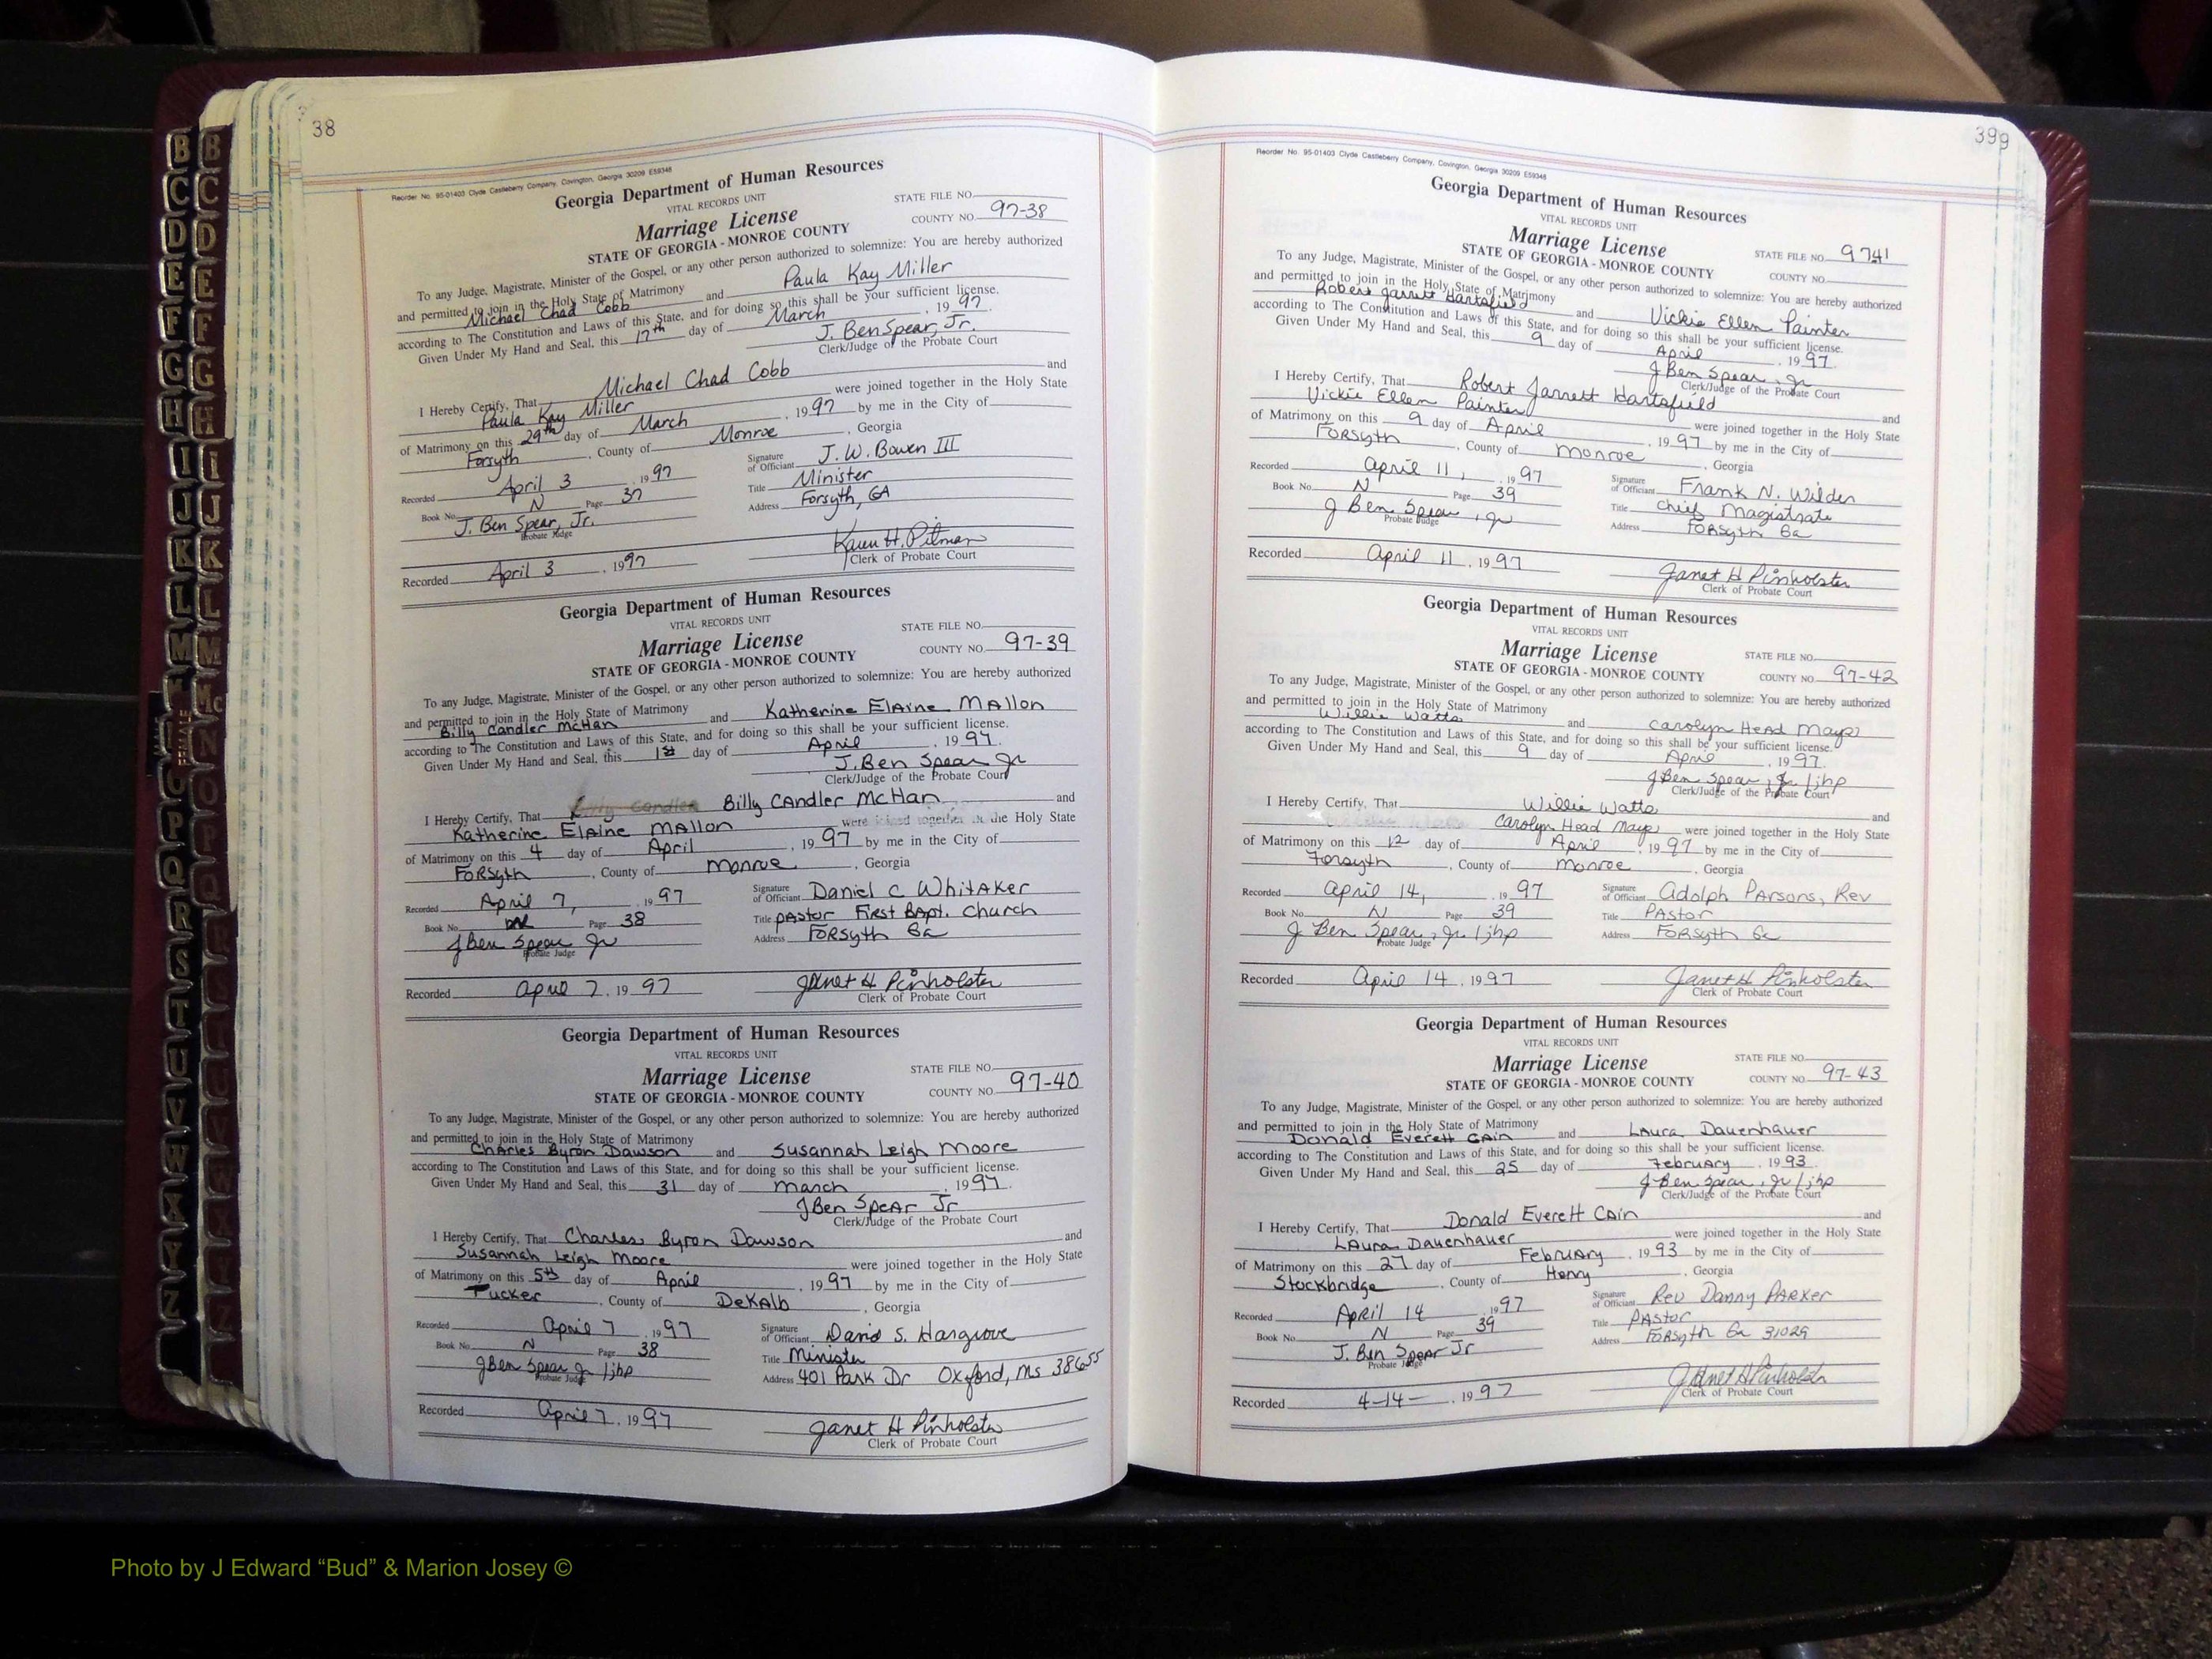 38
Reorder No. 95-01403 Clyde Castleberry Company, Covington, Georgia 30209 E59348
Georgia Department of Human Resources
VITAL RECORDS UNIT
STATE FILE NO.
Marriage License
COUNTY NO. 97-38
STATE OF GEORGIA - MONROE COUNTY
To any Judge, Magistrate, Minister of the Gospel, or any other person authorized to solemnize: You are hereby authorized
and permitted to join in the Holy State of Matrimony
Michael Chad Cobb and Paula Kay Miller
according to The Constitution and Laws of this State, and for doing so this shall be your sufficient license.
Given Under My Hand and Seal, this 17th day of March, 1997.
J. Ben Spear, Jr.
Clerk/Judge of the Probate Court
I Hereby Certify, That Michael Chad Cobb and
Paula Kay Miller were joined together in the Holy State
of Matrimony on this 29th day of March, 1997 by me in the City of
Forsyth, County of Monroe, Georgia
Recorded April 3 1997
Signature of Officiant J. W. Bowen III
Book No. N Page 37
Title Minister
J. Ben Spear, Jr.
Probate Judge
Address Forsyth, GA
Karen H. Pitman
Clerk of Probate Court
Recorded April 3, 1997
Georgia Department of Human Resources
VITAL RECORDS UNIT
STATE FILE NO.
Marriage License
COUNTY NO. 97-39
STATE OF GEORGIA - MONROE COUNTY
To any Judge, Magistrate, Minister of the Gospel, or any other person authorized to solemnize: You are hereby authorized
and permitted to join in the Holy State of Matrimony
Billy Candler McHan and Katherine Elaine Mallon
according to The Constitution and Laws of this State, and for doing so this shall be your sufficient license.
Given Under My Hand and Seal, this 1st day of April, 1997.
J. Ben Spear Jr
Clerk/Judge of the Probate Court
I Hereby Certify, That Billy Candler McHan and
Katherine Elaine Mallon were joined together in the Holy State
of Matrimony on this 4 day of April, 1997 by me in the City of
Forsyth, County of Monroe, Georgia
Recorded April 7, 1997
Signature of Officiant Daniel C Whitaker
Book No. Page 38
Title Pastor First Bapt. Church
J Ben Spear Jr
Probate Judge
Address Forsyth Ga
Recorded April 7, 1997
Janet H Pinholster
Clerk of Probate Court
Georgia Department of Human Resources
VITAL RECORDS UNIT
STATE FILE NO.
Marriage License
COUNTY NO. 97-40
STATE OF GEORGIA - MONROE COUNTY
To any Judge, Magistrate, Minister of the Gospel, or any other person authorized to solemnize: You are hereby authorized
and permitted to join in the Holy State of Matrimony
Charles Byron Dawson and Susannah Leigh Moore
according to The Constitution and Laws of this State, and for doing so this shall be your sufficient license.
Given Under My Hand and Seal, this 31 day of March, 1997.
J Ben Spear Jr
Clerk/Judge of the Probate Court
I Hereby Certify, That Charles Byron Dawson and
Susannah Leigh Moore were joined together in the Holy State
of Matrimony on this 5th day of April, 1997 by me in the City of
Tucker, County of DeKalb, Georgia
Recorded April 7, 1997
Signature of Officiant David S. Hargrove
Book No. N Page 38
Title Minister
J Ben Spear Jr /jhp
Probate Judge
Address 401 Park Dr Oxford, Ms 38655
Recorded April 7, 1997
Janet H Pinholster
Clerk of Probate Court
399
Reorder No. 95-01403 Clyde Castleberry Company, Covington, Georgia 30209 E59348
Georgia Department of Human Resources
VITAL RECORDS UNIT
Marriage License
STATE FILE NO. 9741
STATE OF GEORGIA - MONROE COUNTY
COUNTY NO.
To any Judge, Magistrate, Minister of the Gospel, or any other person authorized to solemnize: You are hereby authorized
and permitted to join in the Holy State of Matrimony
Robert Jarrett Hartsfield and Vickie Ellen Painter
according to The Constitution and Laws of this State, and for doing so this shall be your sufficient license.
Given Under My Hand and Seal, this 9 day of April, 1997.
J Ben Spear, Jr
Clerk/Judge of the Probate Court
I Hereby Certify, That Robert Jarrett Hartsfield and
Vickie Ellen Painter were joined together in the Holy State
of Matrimony on this 9 day of April, 1997 by me in the City of
Forsyth, County of Monroe, Georgia
Recorded April 11, 1997
Signature of Officiant Frank N. Wilder
Book No. N Page 39
Title Chief Magistrate
J Ben Spear, Jr
Probate Judge
Address Forsyth Ga
Recorded April 11, 1997
Janet H Pinholster
Clerk of Probate Court
Georgia Department of Human Resources
VITAL RECORDS UNIT
Marriage License
STATE FILE NO.
STATE OF GEORGIA - MONROE COUNTY
COUNTY NO. 97-42
To any Judge, Magistrate, Minister of the Gospel, or any other person authorized to solemnize: You are hereby authorized
and permitted to join in the Holy State of Matrimony
Willie Watts and Carolyn Head Mays
according to The Constitution and Laws of this State, and for doing so this shall be your sufficient license.
Given Under My Hand and Seal, this 9 day of April, 1997.
J Ben Spear, Jr /jhp
Clerk/Judge of the Probate Court
I Hereby Certify, That Willie Watts and
Carolyn Head Mays were joined together in the Holy State
of Matrimony on this 12 day of April, 1997 by me in the City of
Forsyth, County of Monroe, Georgia
Recorded April 14, 1997
Signature of Officiant Adolph Parsons, Rev
Book No. N Page 39
Title Pastor
J Ben Spear, Jr /jhp
Probate Judge
Address Forsyth Ga
Recorded April 14, 1997
Janet H Pinholster
Clerk of Probate Court
Georgia Department of Human Resources
VITAL RECORDS UNIT
Marriage License
STATE FILE NO.
STATE OF GEORGIA - MONROE COUNTY
COUNTY NO. 97-43
To any Judge, Magistrate, Minister of the Gospel, or any other person authorized to solemnize: You are hereby authorized
and permitted to join in the Holy State of Matrimony
Donald Everett Cain and Laura Dauenhauer
according to The Constitution and Laws of this State, and for doing so this shall be your sufficient license.
Given Under My Hand and Seal, this 25 day of February, 1993.
J Ben Spear, Jr /jhp
Clerk/Judge of the Probate Court
I Hereby Certify, That Donald Everett Cain and
Laura Dauenhauer were joined together in the Holy State
of Matrimony on this 27 day of February, 1993 by me in the City of
Stockbridge, County of Henry, Georgia
Recorded April 14 1997
Signature of Officiant Rev Danny Parker
Book No. N Page 39
Title Pastor
J. Ben Spear Jr
Probate Judge
Address Forsyth Ga 31029
Recorded 4-14-, 1997
Janet H Pinholster
Clerk of Probate Court
Photo by J Edward “Bud” & Marion Josey ©